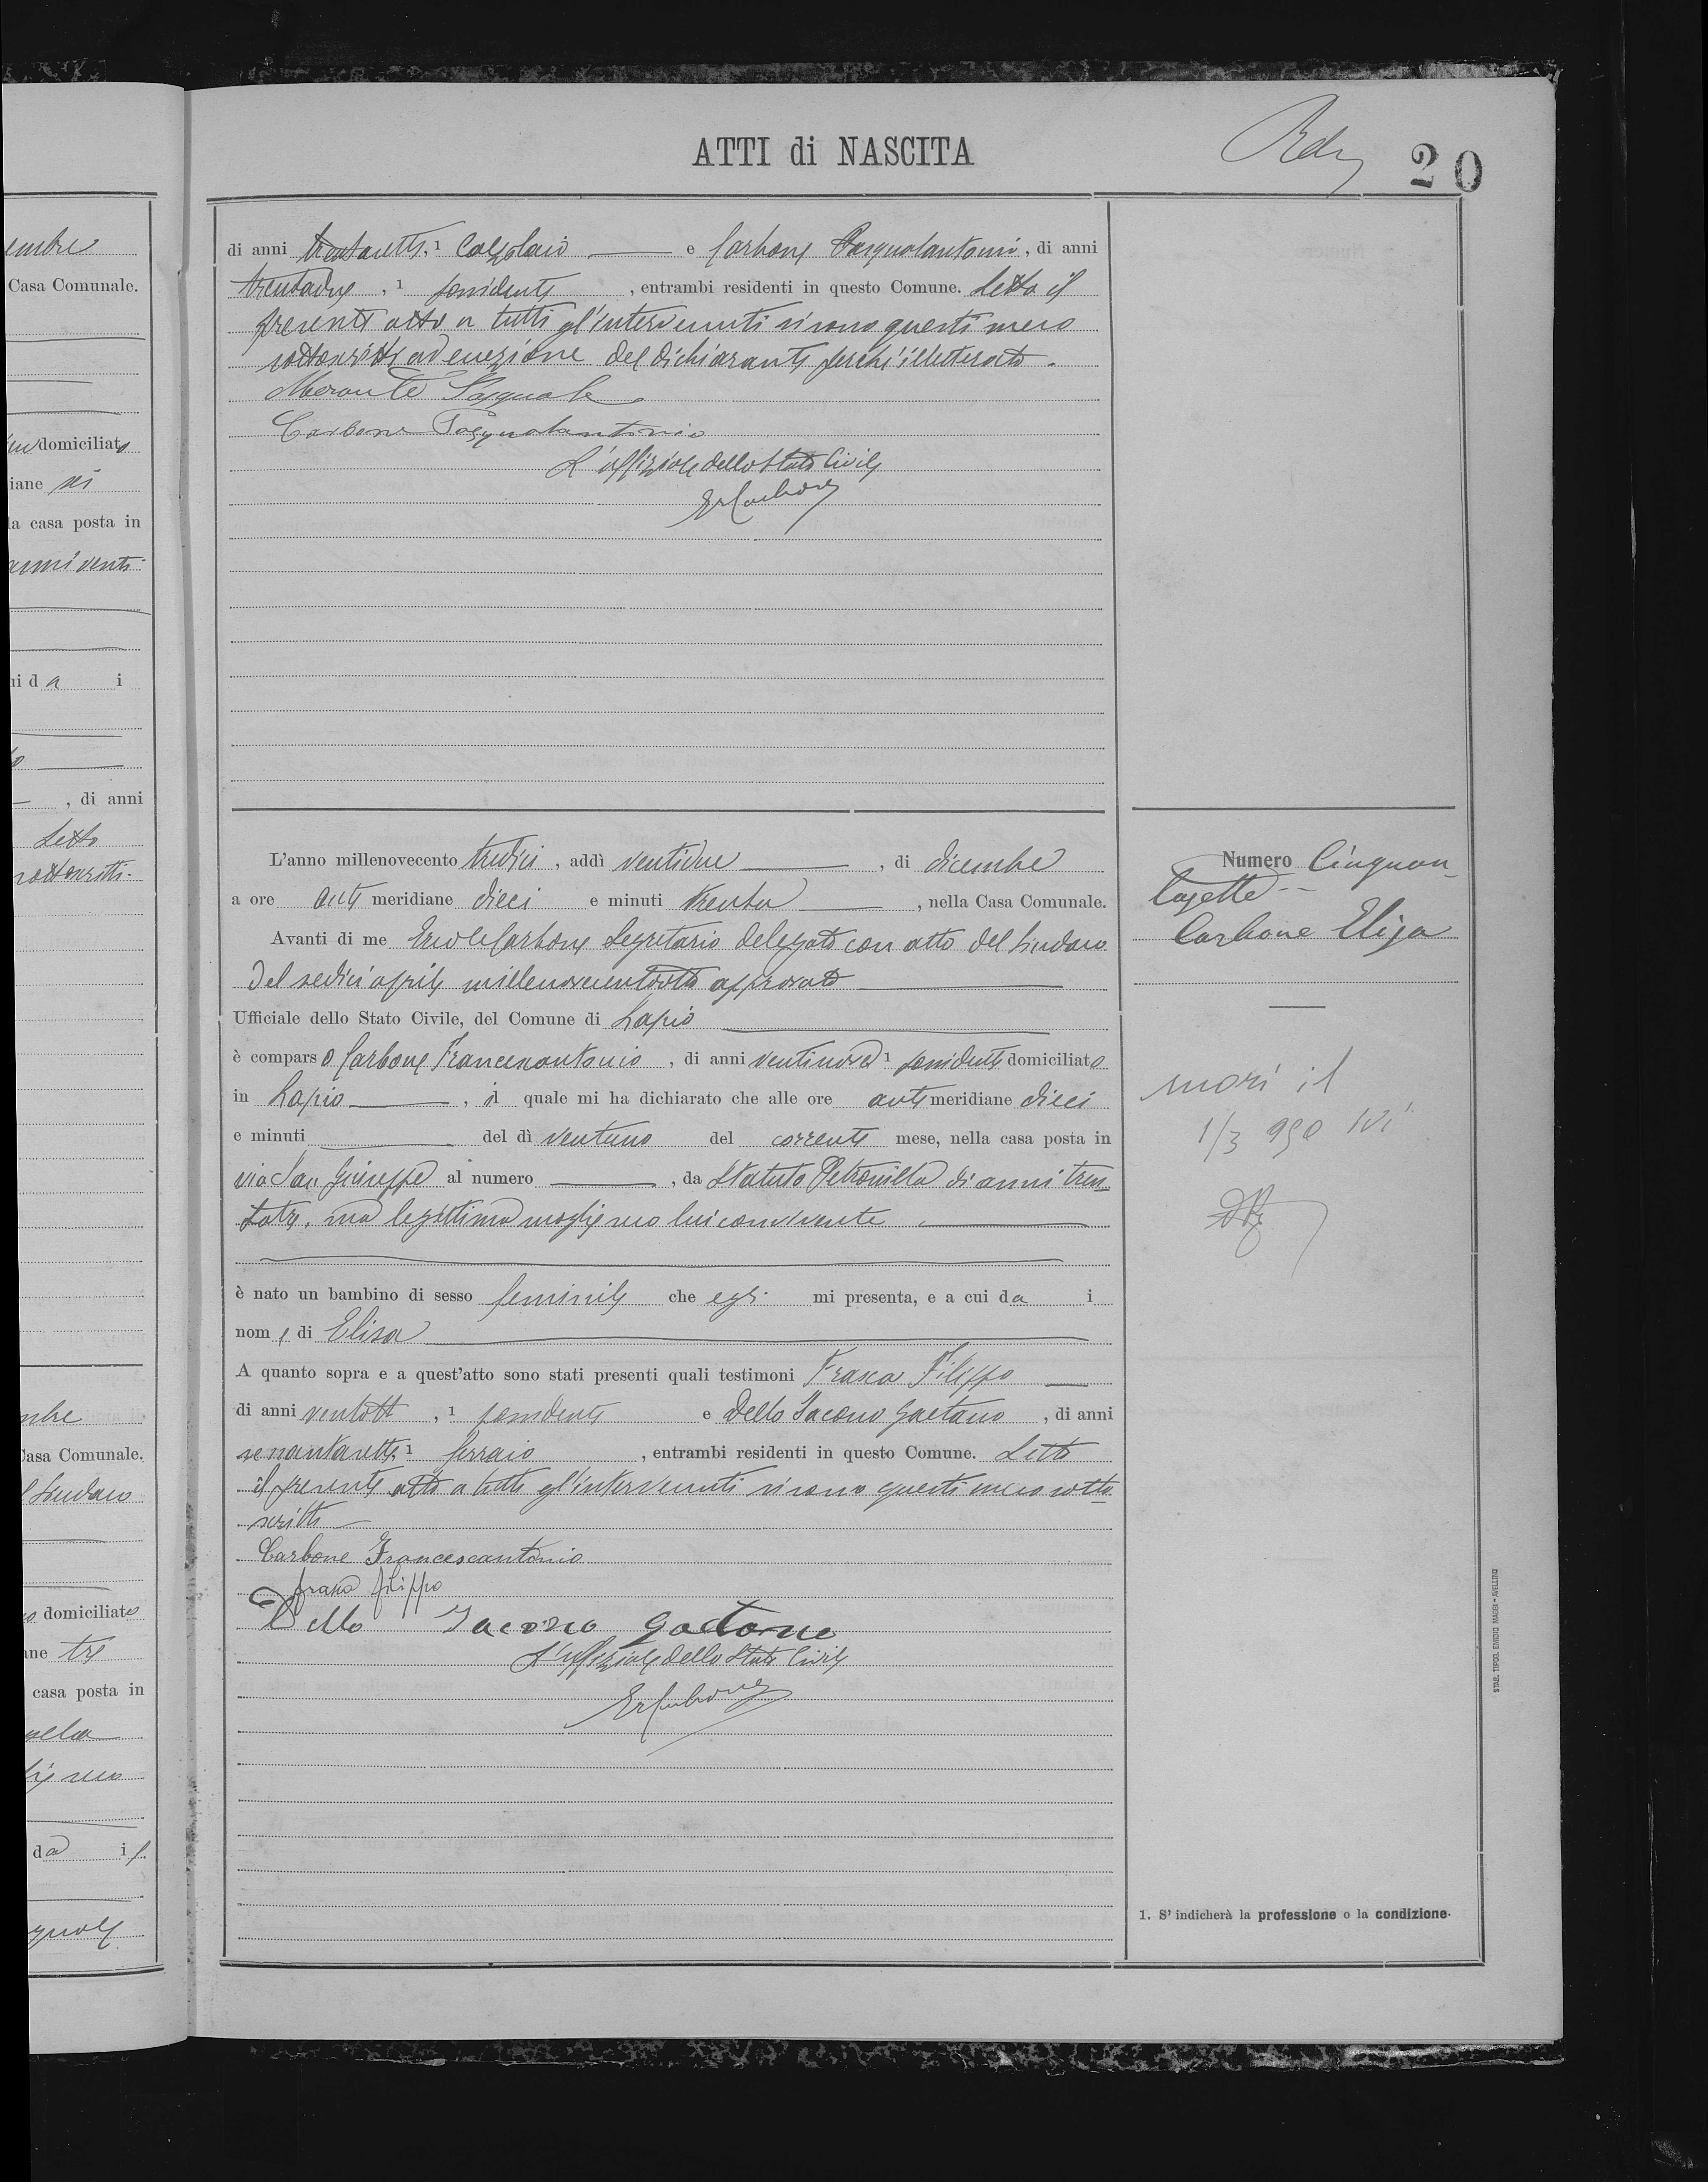 ATTI di NASCITA
20
di anni trentasette, 1 Calzolaio e Carbone Pasqualantonio, di anni
trentadue, 1 possidente, entrambi residenti in questo Comune. Letto il
presente atto a tutti gl'intervenuti si sono questi meco
sottoscritti ad eccezione del dichiarante perché illetterato.
Merante Pasquale
Carbone Pasqualantonio
L'uffiziale dello Stato Civile
ErCarbone
L'anno millenovecento tredici, addì ventidue, di dicembre
a ore anti meridiane dieci e minuti trenta, nella Casa Comunale.
Avanti di me Ercole Carbone Segretario delegato con atto del Sindaco
del sedici aprile millenovecentootto approvato
Ufficiale dello Stato Civile, del Comune di Lapio
è comparso Carbone Francescantonio, di anni ventinove 1 possidente domiciliato
in Lapio, il quale mi ha dichiarato che alle ore anti meridiane dieci
e minuti del dì ventuno del corrente mese, nella casa posta in
via San Giuseppe al numero, da Statuto Petronilla di anni tren-
tatre, sua legittima moglie seco lui convivente
è nato un bambino di sesso feminile che egli mi presenta, e a cui da i
nome di Elisa
A quanto sopra e a quest'atto sono stati presenti quali testimoni Frasca Filippo
di anni ventotto, 1 possidente e Dello Iacono Gaetano, di anni
sessantasette, 1 ferraio, entrambi residenti in questo Comune. Letto
il presente atto a tutti gl'intervenuti si sono questi meco sotto-
scritti
Carbone Francescantonio
Frasca filippo
Dello Iacono Gaetano
L'uffiziale dello Stato Civile
ErCarbone
Numero Cinquan-
tasette
Carbone Elisa
morì il
1/3 990 ivi
1. S'indicherà la professione o la condizione.
STAB. TIPOG. EMIDIO MAGGI - AVELLINO
embre
Casa Comunale.
domiciliato
iane sei
la casa posta in
anni venti-
ui da i
, di anni
Letto
sottoscritti.
mbre
Casa Comunale.
Sindaco
domiciliato
ane tre
casa posta in
seco
da il